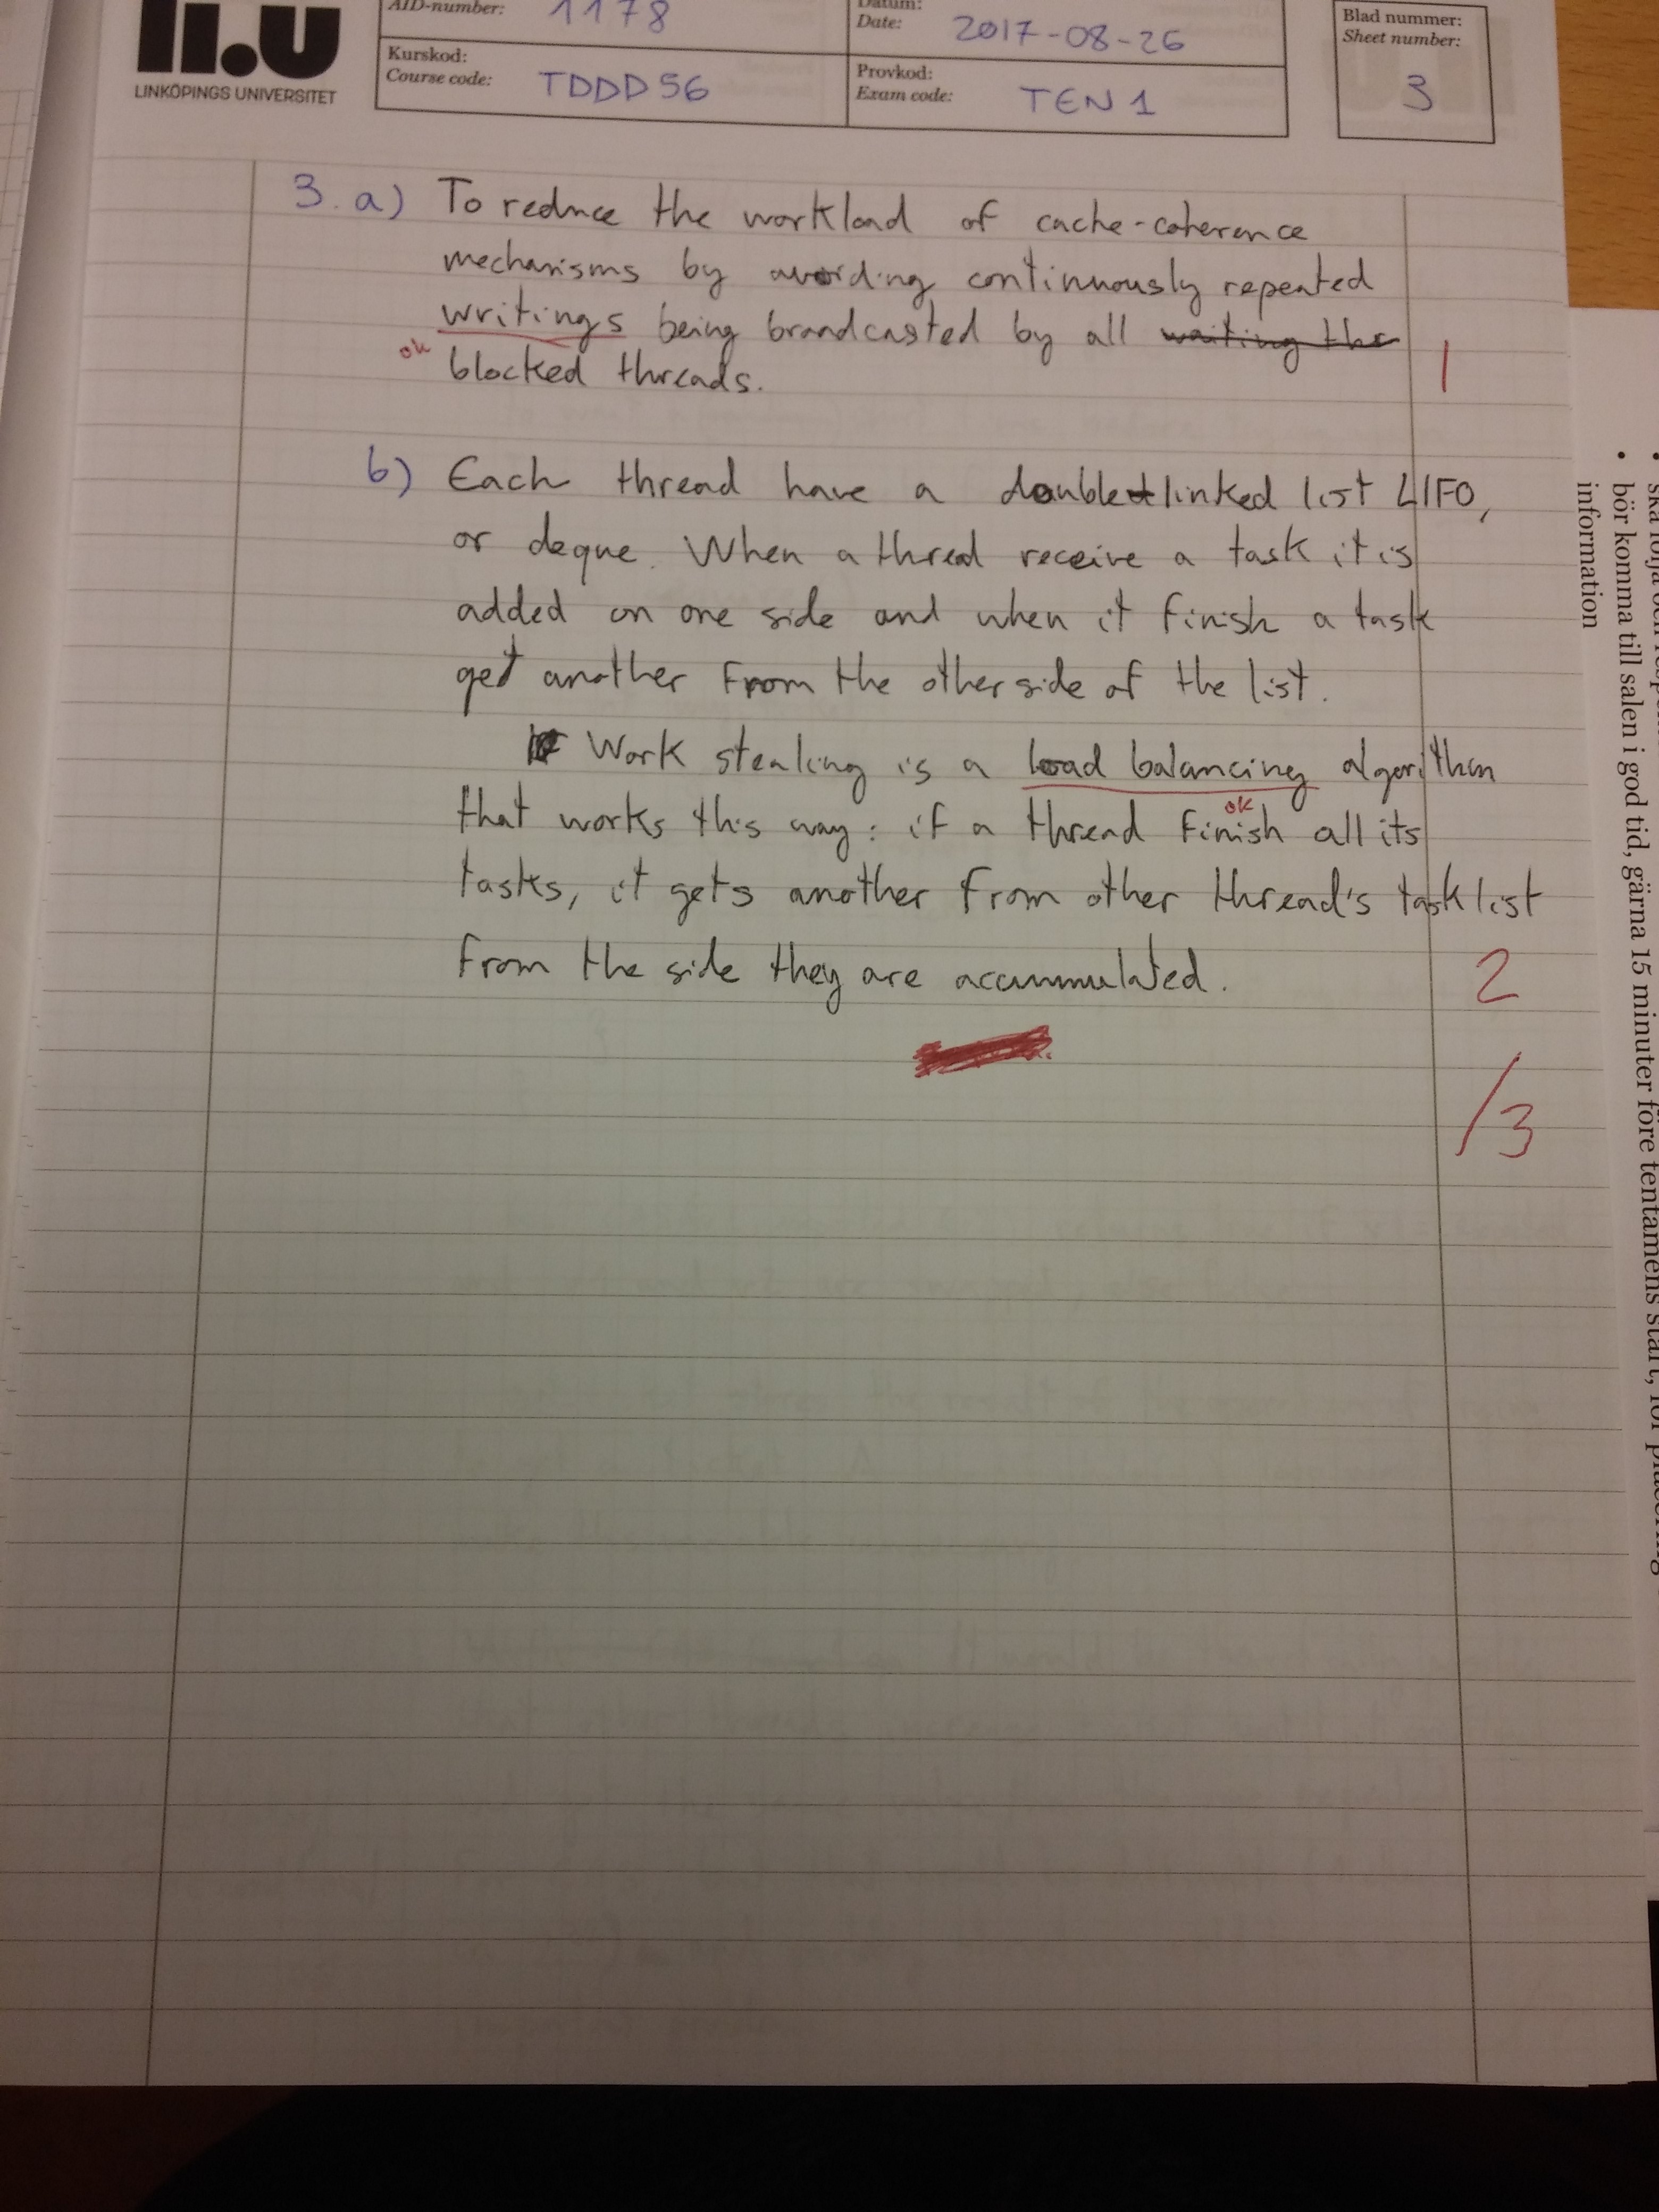 li.u
LINKÖPINGS UNIVERSITET
AID-number: 1178
Datum:
Date: 2017-08-26
Kurskod:
Course code: TDDD56
Provkod:
Exam code: TEN1
Blad nummer:
Sheet number:
3
3. a) To reduce the workload of cache-coherence
mechanisms by avoiding continuously repeated
writings being broadcasted by all waiting thr
ok blocked threads.
1
b) Each thread have a double linked list LIFO,
or deque. When a thread receive a task it is
added on one side and when it finish a task
get another from the other side of the list.
Work stealing is a load balancing algorithm
that works this way: if a thread finish all its
ok
tasks, it gets another from other thread's task list
from the side they are accummulated.
2
/3
bör komma till salen i god tid, gärna 15 minuter före tentamens start, för placering
information